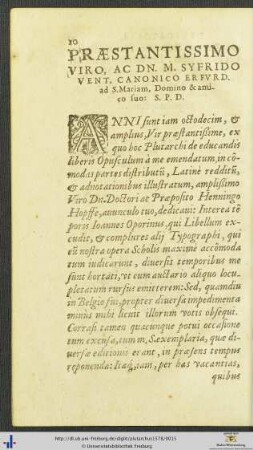 20
PRÆSTANTISSIMO
VIRO, AC DN. M. SYFRIDO
VENT. CANONICO ERFVRD.
ad S. Mariam, Domino & ami-
co suo: S. P. D.
ANNI sunt iam octodecim, &
amplius, Vir præstantißime, ex
quo hoc Plutarchi de educandis
liberis Opusculum à me emendatum, in cō-
modas partes distributū, Latinè redditū,
& adnotationibus illustratum, amplißimo
Viro Dn. Doctori ac Præposito Henningo
Hopffe, auunculo tuo, dedicaui: Interea tē
poris Ioannes Oporinus, qui Libellum ex-
cudit, & complures alij Typographi, qui
eū nostra opera Scholis maximè accōmoda
tum iudicarunt, diuersis temporibus me
sunt hortati, vt cum auctario aliquo locu-
pletatum rursus emitterem: Sed, quamdiu
in Belgio fui, propter diuersa impedimenta
minus mihi licuit illorum votis obsequi.
Corrasi tamen quacunque potui occasione
tum excusa, tum m, s, exemplaria, quæ di-
uersæ editionis erant, in præsens tempus
reponenda: Itaq; iam, per has vacantias,
quibus
http://dl.ub.uni-freiburg.de/diglit/plutarchus1578/0023
© Universitätsbibliothek Freiburg